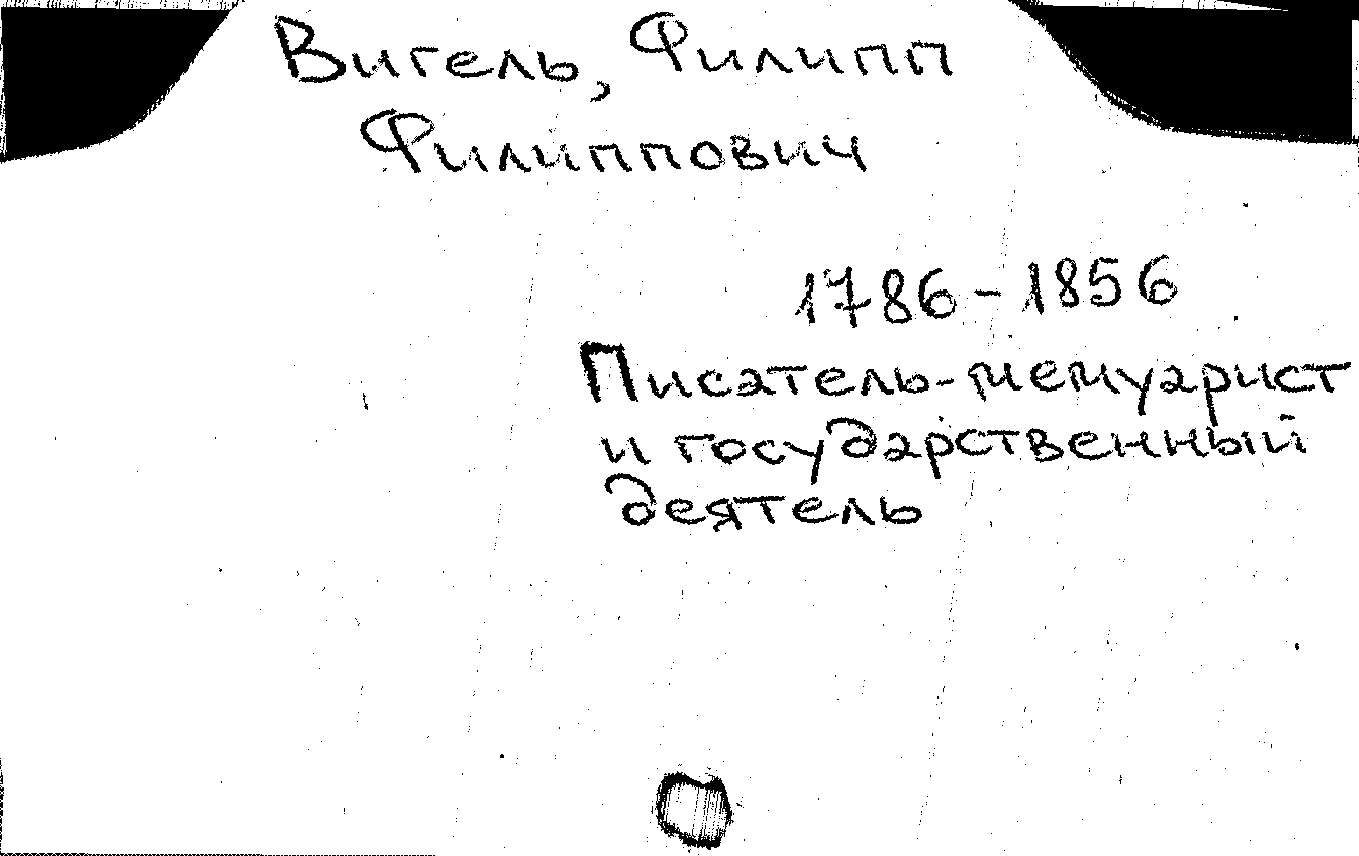 Вигель, Филипп
Филиппович
1786-1856
Писатель-мемуарист
и государственный
деятель